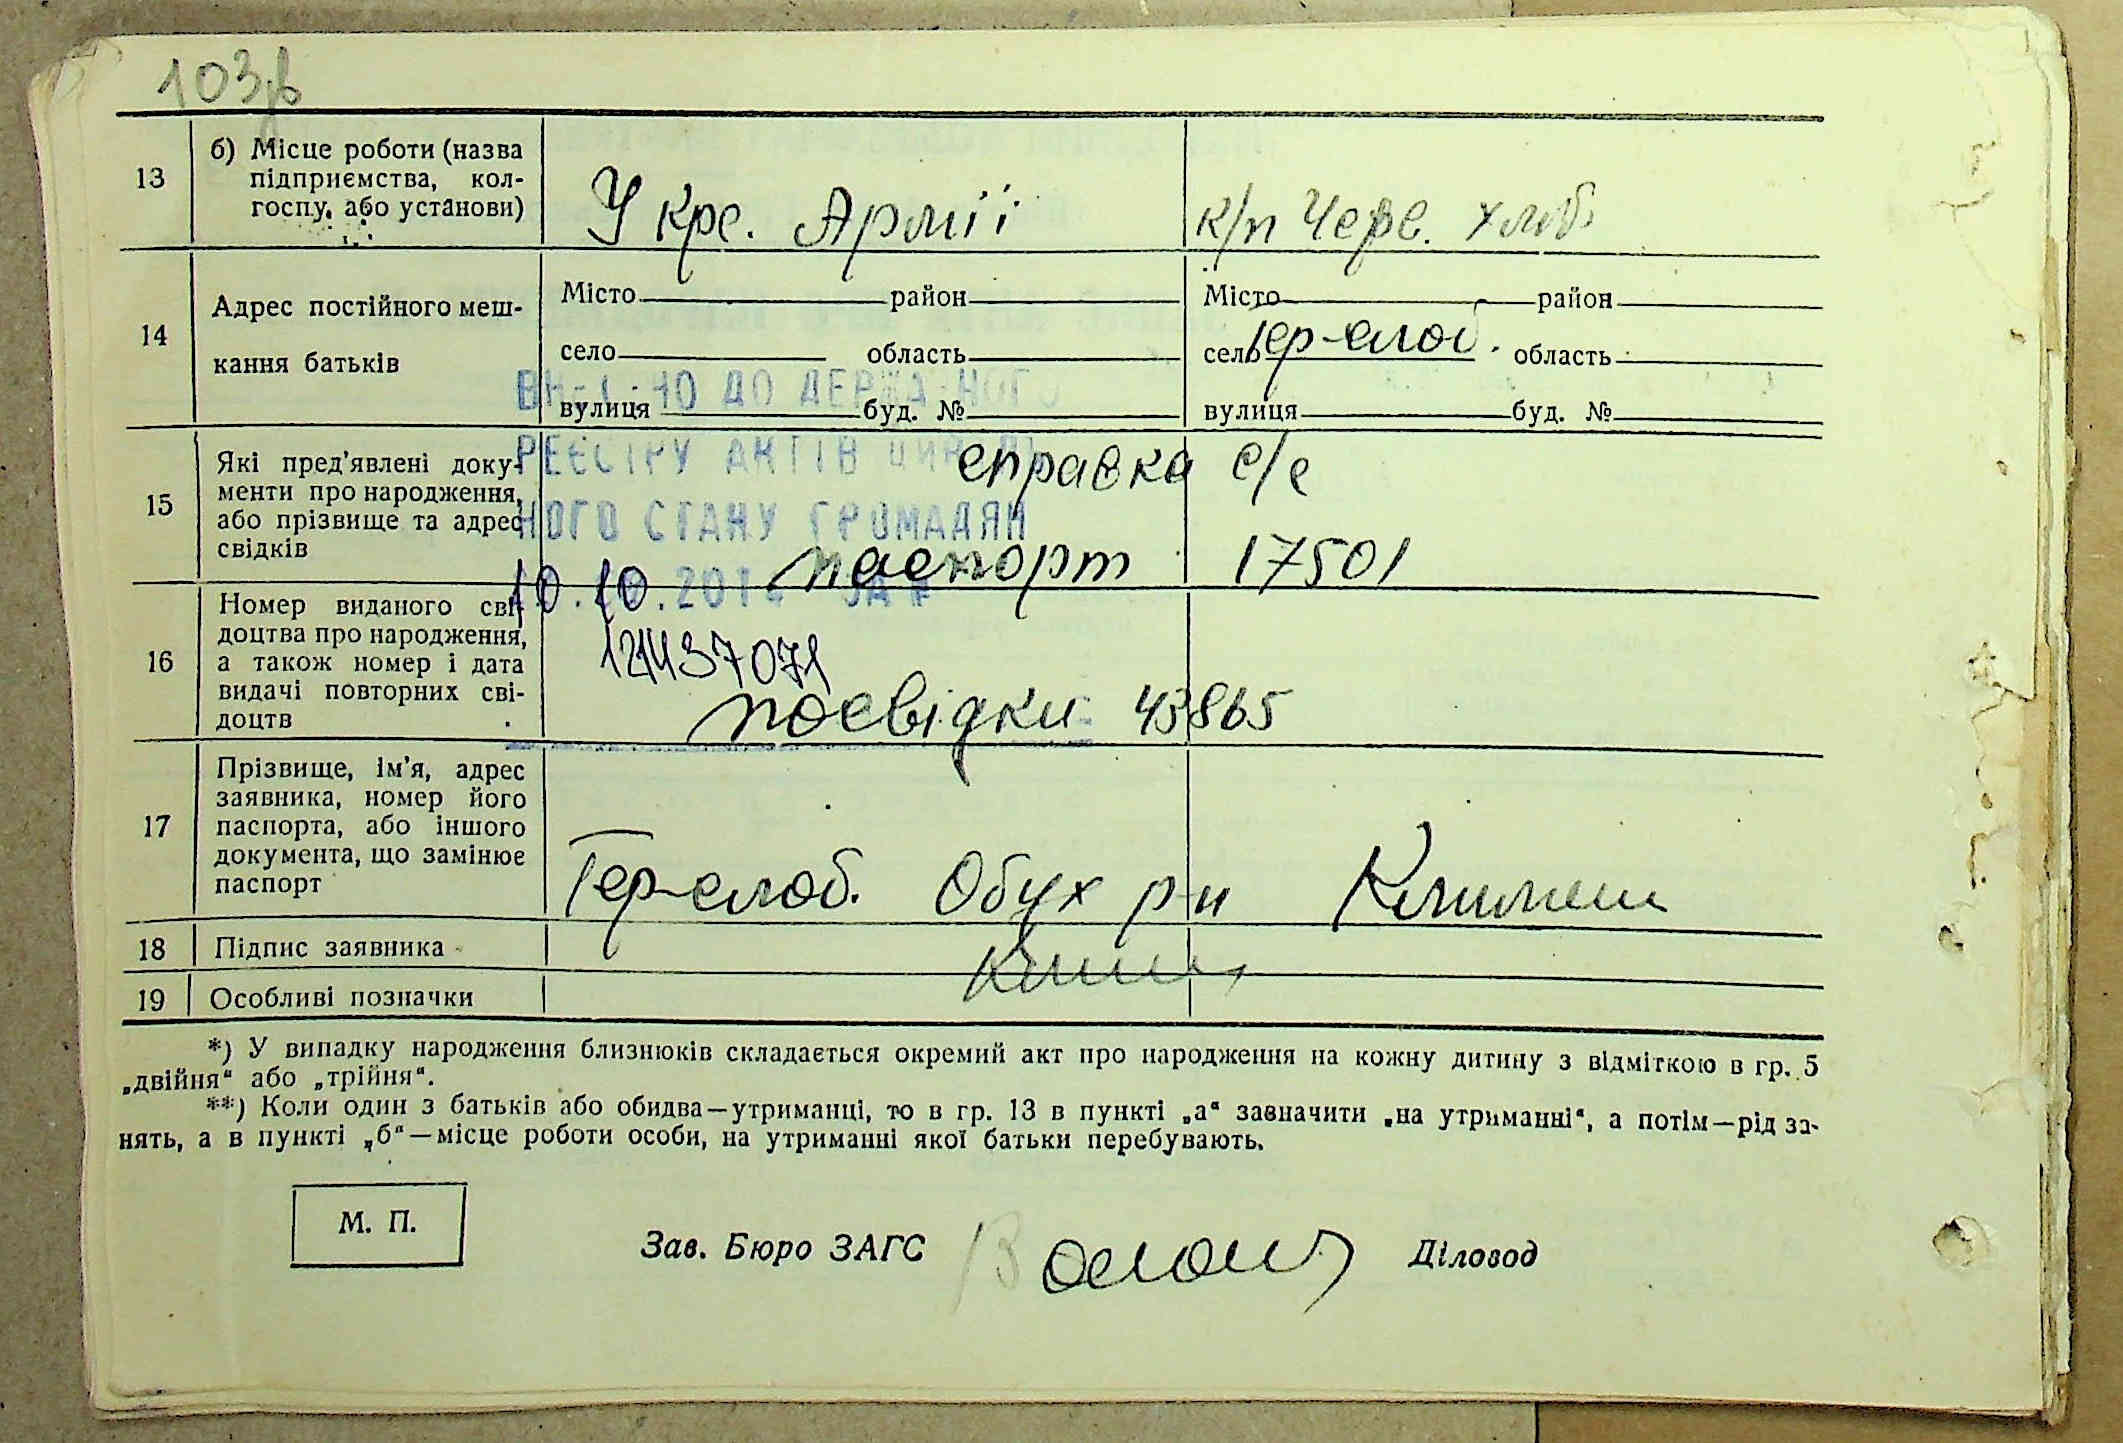 103
13 б) Місце роботи (назва
підприємства, кол-
госпу, або установи)
У крс. Армії
к/п Черв. хліб
14 Адрес постійного меш-
кання батьків
Місто район
село область
вулиця буд. №
Місто район
село Гер-слоб. область
вулиця буд. №
ДО ДЕРЖАВНОГО
РЕЄСТРУ АКТІВ
НОГО СТАНУ ГРОМАДЯН
10.10.201
15 Які пред'явлені доку-
менти про народження,
або прізвище та адрес
свідків
справка с/с
паспорт 17501
16 Номер виданого сві-
доцтва про народження,
а також номер і дата
видачі повторних сві-
доцтв
посвідки 43865
17 Прізвище, ім'я, адрес
заявника, номер його
паспорта, або іншого
документа, що замінює
паспорт
Гер-слоб. Обух р-н
18 Підпис заявника
19 Особливі позначки
*) У випадку народження близнюків складається окремий акт про народження на кожну дитину з відміткою в гр. 5
„двійня" або „трійня".
**) Коли один з батьків або обидва—утриманці, то в гр. 13 в пункті „а" зазначити „на утриманні", а потім—рід за-
нять, а в пункті „б"—місце роботи особи, на утриманні якої батьки перебувають.
М. П.
Зав. Бюро ЗАГС
Діловод